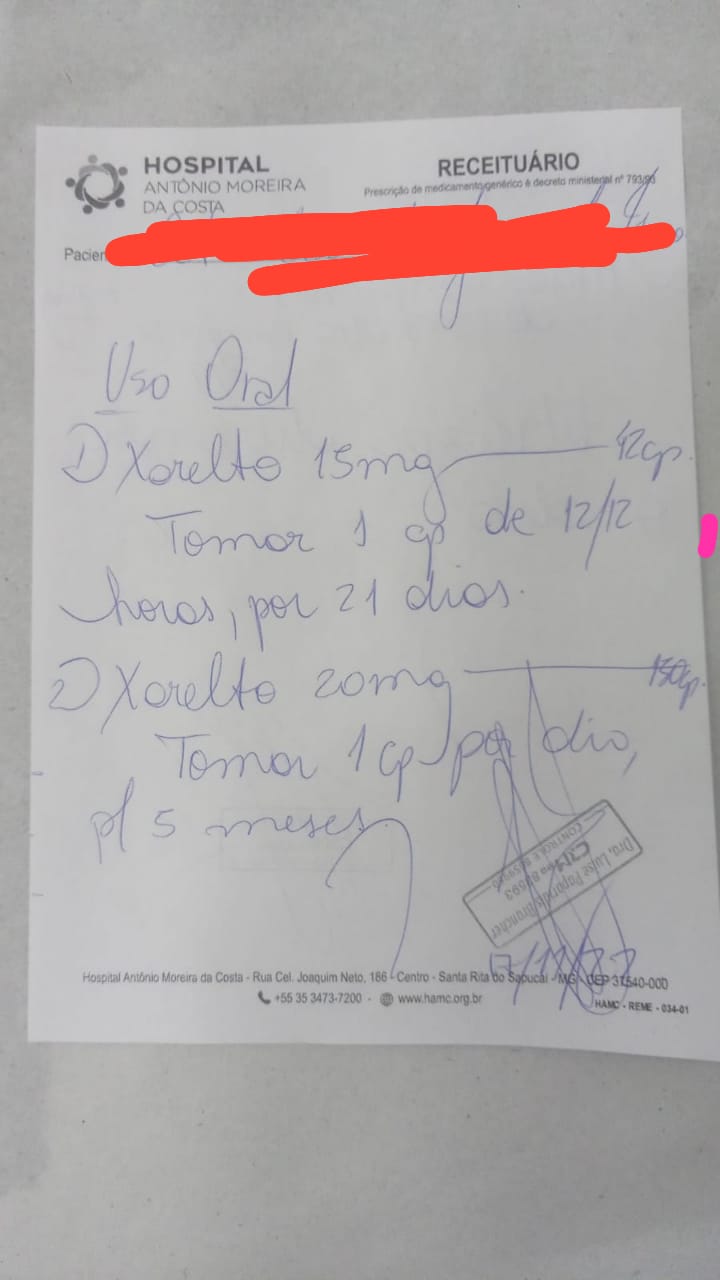 HOSPITAL
ANTÔNIO MOREIRA
DA COSTA
RECEITUÁRIO
Prescrição de medicamento genérico é decreto ministerial nº 793/93
Pacien
Uso Oral
1) Xarelto 15mg 42cp.
Tomar 1 cp de 12/12
horas, por 21 dias.
2) Xarelto 20mg 150cp.
Tomar 1 cp por dia,
p/ 5 meses
Dra. Luise
CRM
CONTROLE
Hospital Antônio Moreira da Costa - Rua Cel. Joaquim Neto, 186 - Centro - Santa Rita do Sapucaí - MG - CEP 37540-000
+55 35 3473-7200 - www.hamc.org.br
HAMC - REME - 034-01